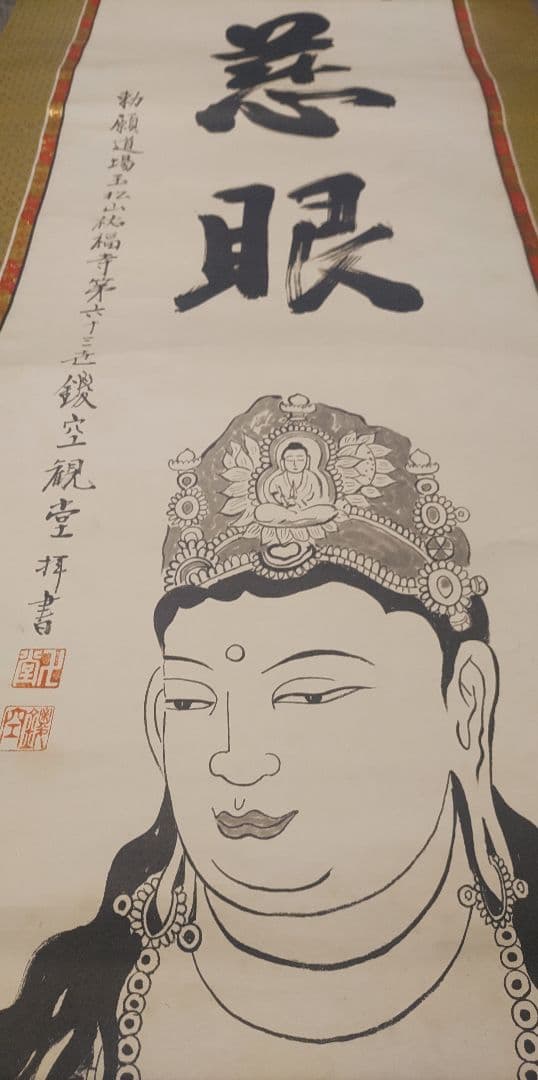 慈眼
勅願道場玉松山祐福寺第六十三世鑁空観堂拝書